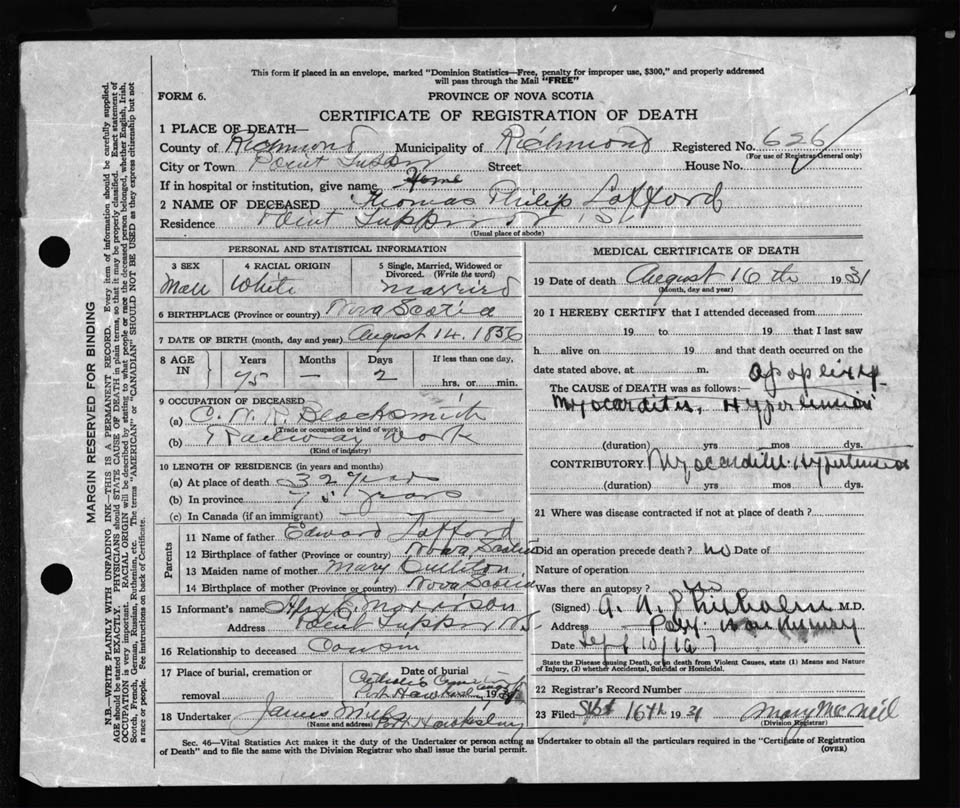 This form if placed in an envelope, marked "Dominion Statistics—Free, penalty for improper use, $300," and properly addressed
will pass through the Mail "FREE"
FORM 6.
PROVINCE OF NOVA SCOTIA
CERTIFICATE OF REGISTRATION OF DEATH
1 PLACE OF DEATH—
County of Richmond Municipality of Richmond Registered No. 626
(For use of Registrar-General only)
City or Town Point Street House No.
If in hospital or institution, give name Home
2 NAME OF DECEASED Thomas Philip Lafford
Residence Point Tupper
(Usual place of abode)
PERSONAL AND STATISTICAL INFORMATION
3 SEX
4 RACIAL ORIGIN
5 Single, Married, Widowed or
Divorced. (Write the word)
White
Married
6 BIRTHPLACE (Province or country) Nova Scotia
7 DATE OF BIRTH (month, day and year) August 14. 1856
8 AGE
IN
Years
Months
Days
If less than one day,
75 — 2
hrs. or min.
9 OCCUPATION OF DECEASED
(a) C.N.R. Blacksmith
(Trade or occupation or kind of work)
(b) Railway Work
(Kind of industry)
10 LENGTH OF RESIDENCE (in years and months)
(a) At place of death 32 years
(b) In province 75 years
(c) In Canada (if an immigrant)
Parents
11 Name of father Edward Lafford
12 Birthplace of father (Province or country) Nova Scotia
13 Maiden name of mother Mary
14 Birthplace of mother (Province or country) Nova Scotia
15 Informant's name Morrison
Address Point Tupper N.S.
16 Relationship to deceased Cousin
17 Place of burial, cremation or
removal
Date of burial
Port Hawkesbury 19
18 Undertaker James Port Hawkesbury
(Name and address)
MEDICAL CERTIFICATE OF DEATH
19 Date of death August 16th 1931
(Month, day and year)
20 I HEREBY CERTIFY that I attended deceased from
19 to 19 that I last saw
h alive on 19 and that death occurred on the
date stated above, at m.
apoplexy
The CAUSE OF DEATH was as follows:
Myocarditis, Hypertension
(duration) yrs mos dys.
CONTRIBUTORY Myocarditis Hypertension
(duration) yrs mos dys.
21 Where was disease contracted if not at place of death?
Did an operation precede death? no Date of
Nature of operation
Was there an autopsy? no
(Signed) A. A. Chisholm M.D.
Address Port Hawkesbury
Date Sept 10/
State the Disease causing Death, or in death from Violent Causes, state (1) Means and Nature
of Injury, (2) whether Accidental, Suicidal or Homicidal.
22 Registrar's Record Number
23 Filed Sept 16th 1931 Mary McNeil
(Division Registrar)
Sec. 46—Vital Statistics Act makes it the duty of the Undertaker or person acting as Undertaker to obtain all the particulars required in the "Certificate of Registration
of Death" and to file the same with the Division Registrar who shall issue the burial permit.
(OVER)
MARGIN RESERVED FOR BINDING
N.B.—WRITE PLAINLY WITH UNFADING INK—THIS IS A PERMANENT RECORD. Every item of information should be carefully supplied.
AGE should be stated EXACTLY. PHYSICIANS should STATE CAUSE OF DEATH in plain terms, so that it may be properly classified. Exact statement of
OCCUPATION is very important. RACIAL ORIGIN will be described by stating to what people or race the deceased person belonged, whether English, Irish,
Scotch, French, German, Russian, Ruthenian, etc. The terms "AMERICAN" or "CANADIAN" SHOULD NOT BE USED as they express citizenship but not
a race or people. See instructions on back of Certificate.